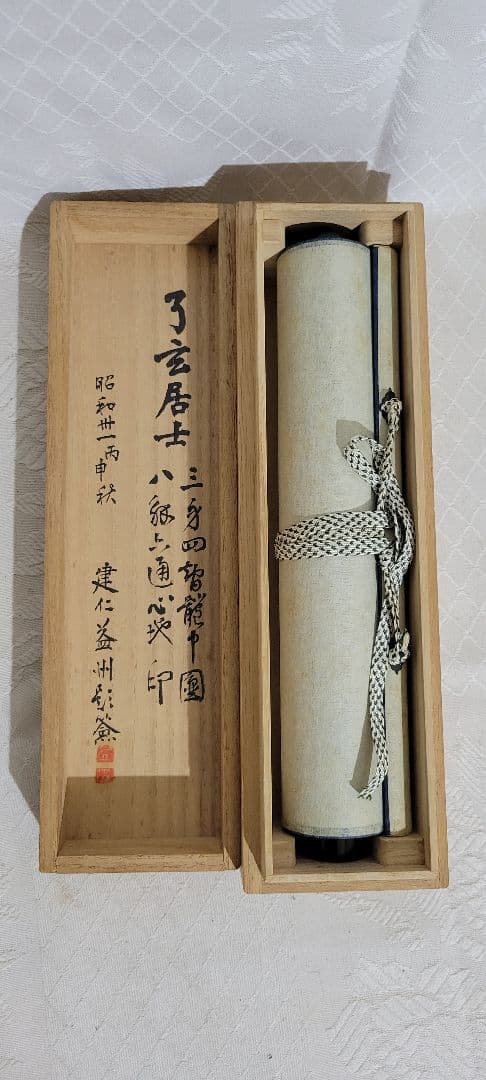 了玄居士
三身四智體中圓
八解六通心地印
昭和卅一丙申秋
建仁益州題簽